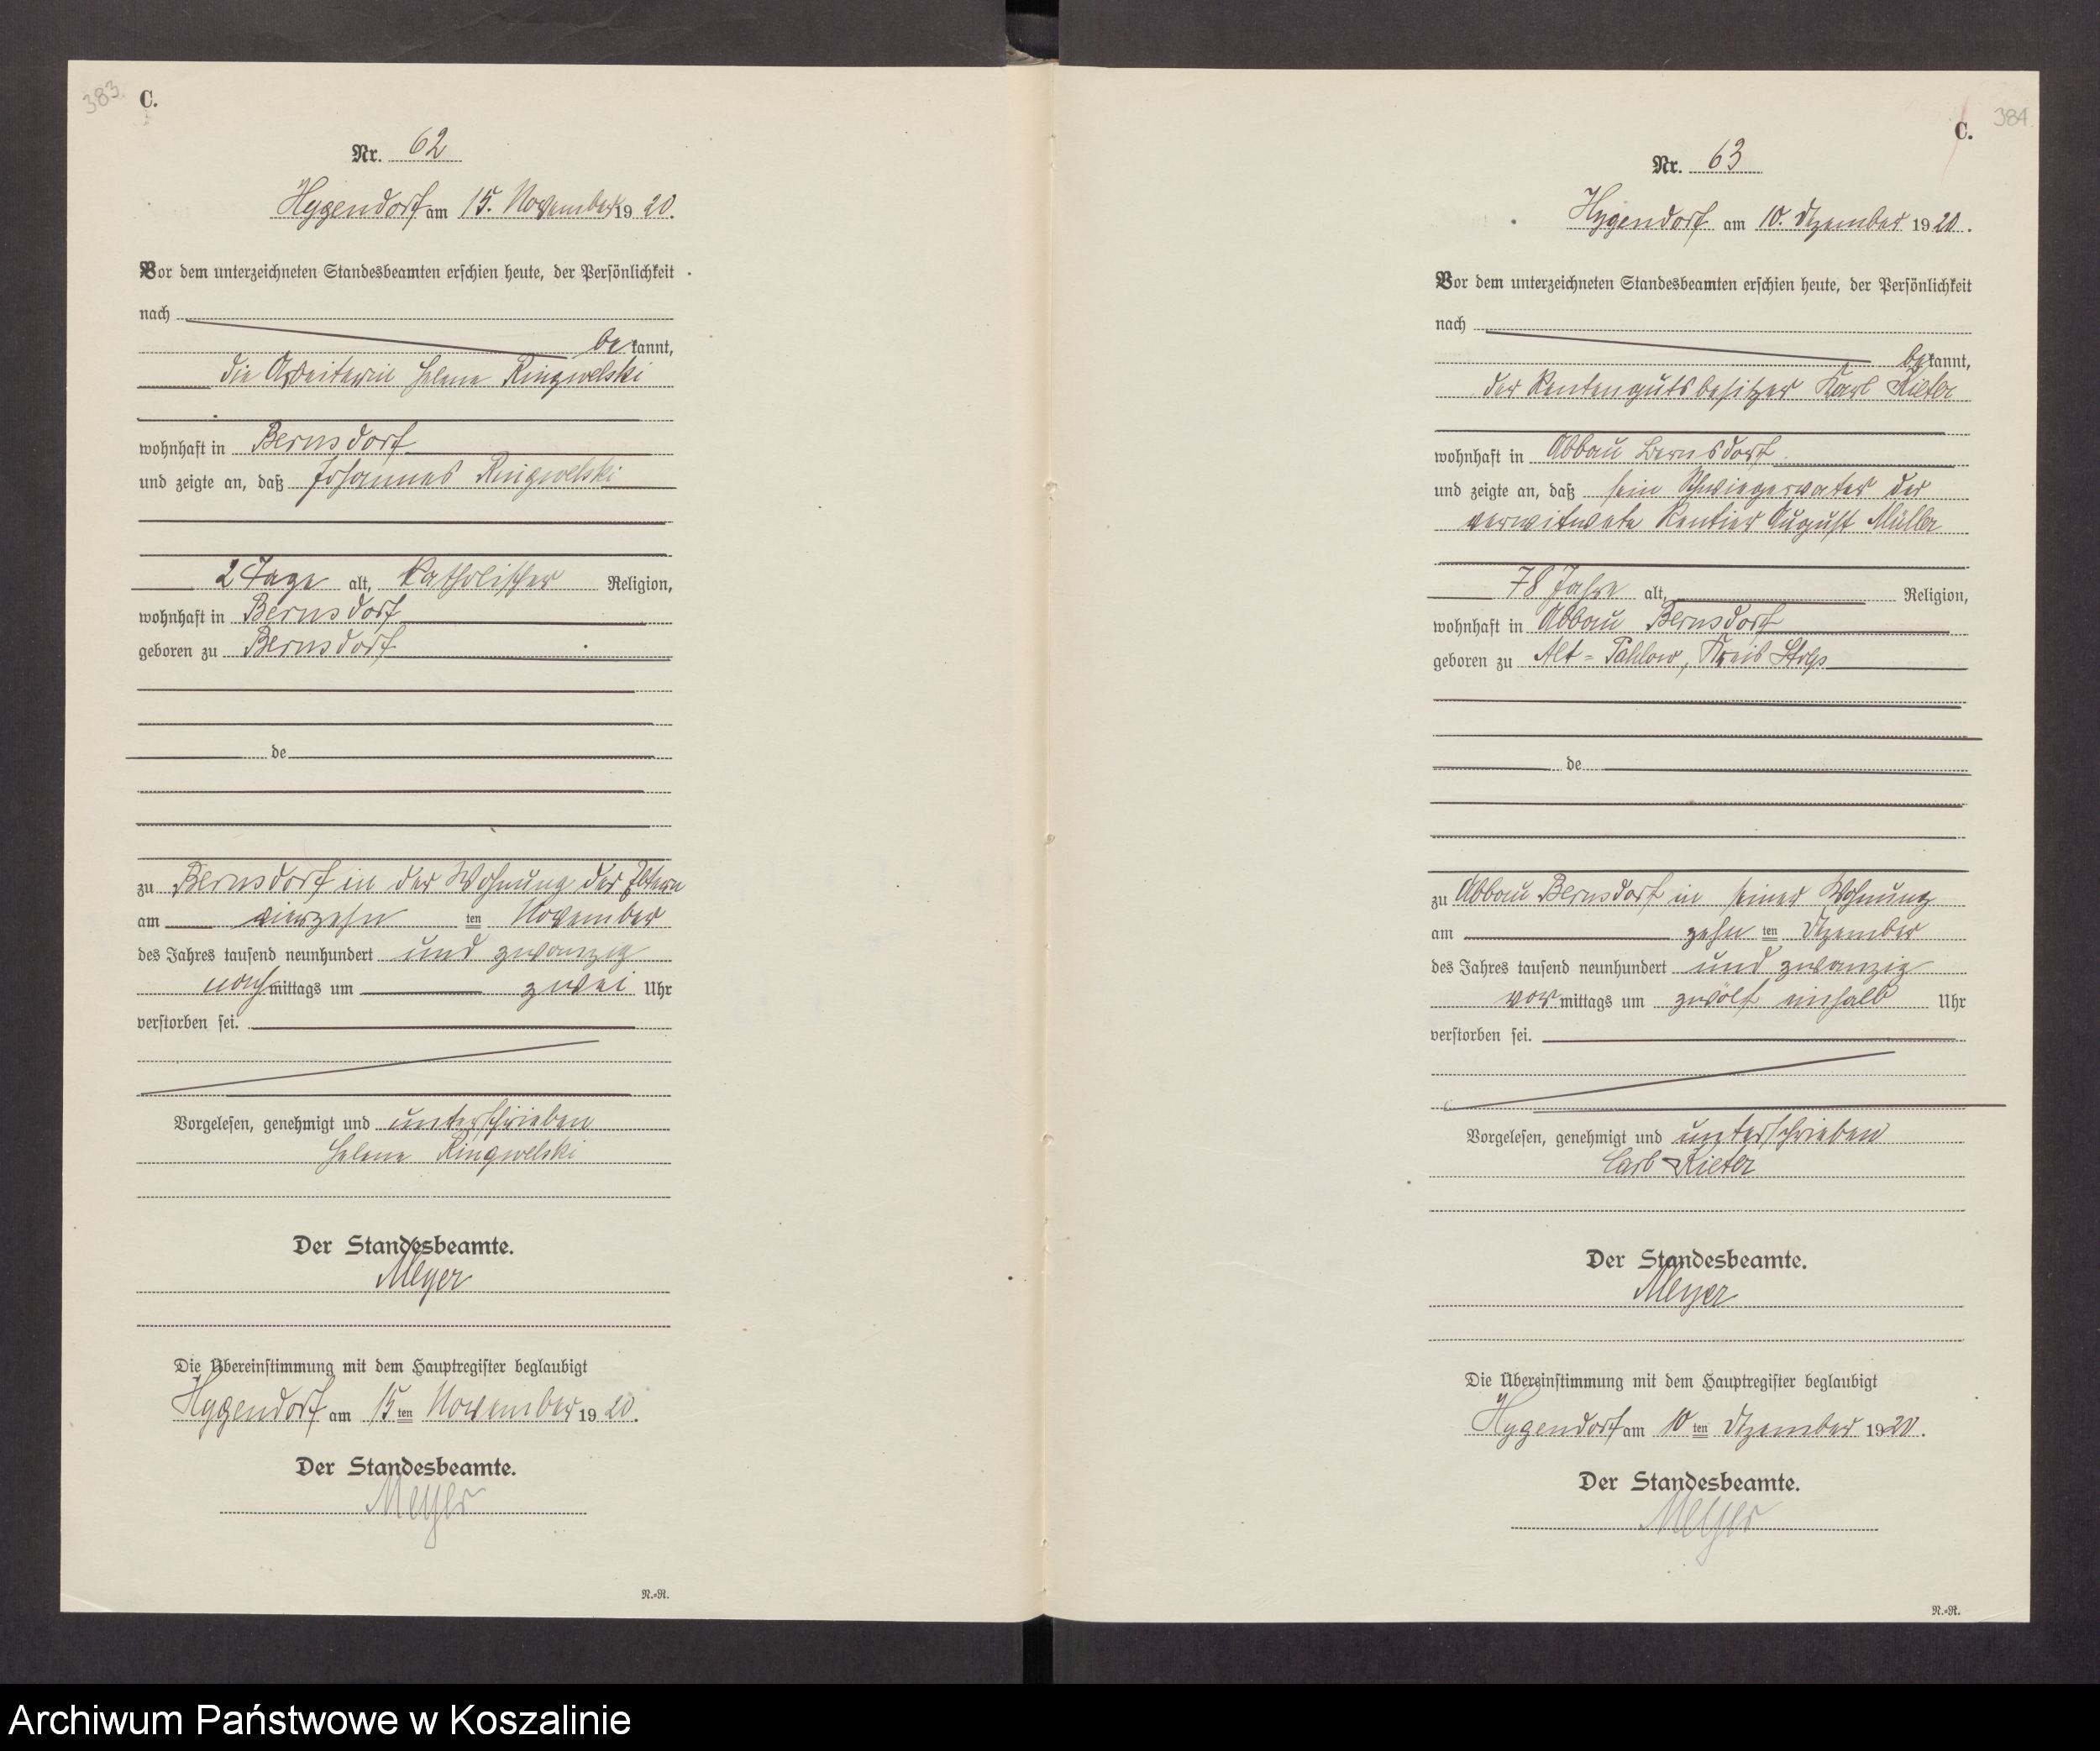 383.
C.
Nr. 62
Hygendorf am 15. November 1920.
Vor dem unterzeichneten Standesbeamten erschien heute, der Persönlichkeit
nach
bekannt,
die Arbeiterin Helene Ringwelski
wohnhaft in Bernsdorf
und zeigte an, daß Johannes Ringwelski
2 Tage alt, katholischer Religion,
wohnhaft in Bernsdorf
geboren zu Bernsdorf
de
zu Bernsdorf in der Wohnung der Eltern
am vierzehnten November
des Jahres tausend neunhundert und zwanzig
nachmittags um zwei Uhr
verstorben sei.
Vorgelesen, genehmigt und unterschrieben
Helene Ringwelski
Der Standesbeamte.
Meyer
Die Übereinstimmung mit dem Hauptregister beglaubigt
Hygendorf am 15ten November 1920.
Der Standesbeamte.
Meyer
N.-R.
384.
C.
Nr. 63
Hygendorf am 10. Dezember 1920.
Vor dem unterzeichneten Standesbeamten erschien heute, der Persönlichkeit
nach
bekannt,
der Rentengutsbesitzer Karl
wohnhaft in Abbau Bernsdorf
und zeigte an, daß sein Schwiegervater der
verwitwete Rentier August Müller
78 Jahre alt, Religion,
wohnhaft in Abbau Bernsdorf
geboren zu Alt-Pahlow, Kreis Stolp
de
zu Abbau Bernsdorf in seiner Wohnung
am zehnten Dezember
des Jahres tausend neunhundert und zwanzig
vormittags um zwölf einhalb Uhr
verstorben sei.
Vorgelesen, genehmigt und unterschrieben
Carl
Der Standesbeamte.
Meyer
Die Übereinstimmung mit dem Hauptregister beglaubigt
Hygendorf am 10ten Dezember 1920.
Der Standesbeamte.
Meyer
N.-R.
Archiwum Państwowe w Koszalinie